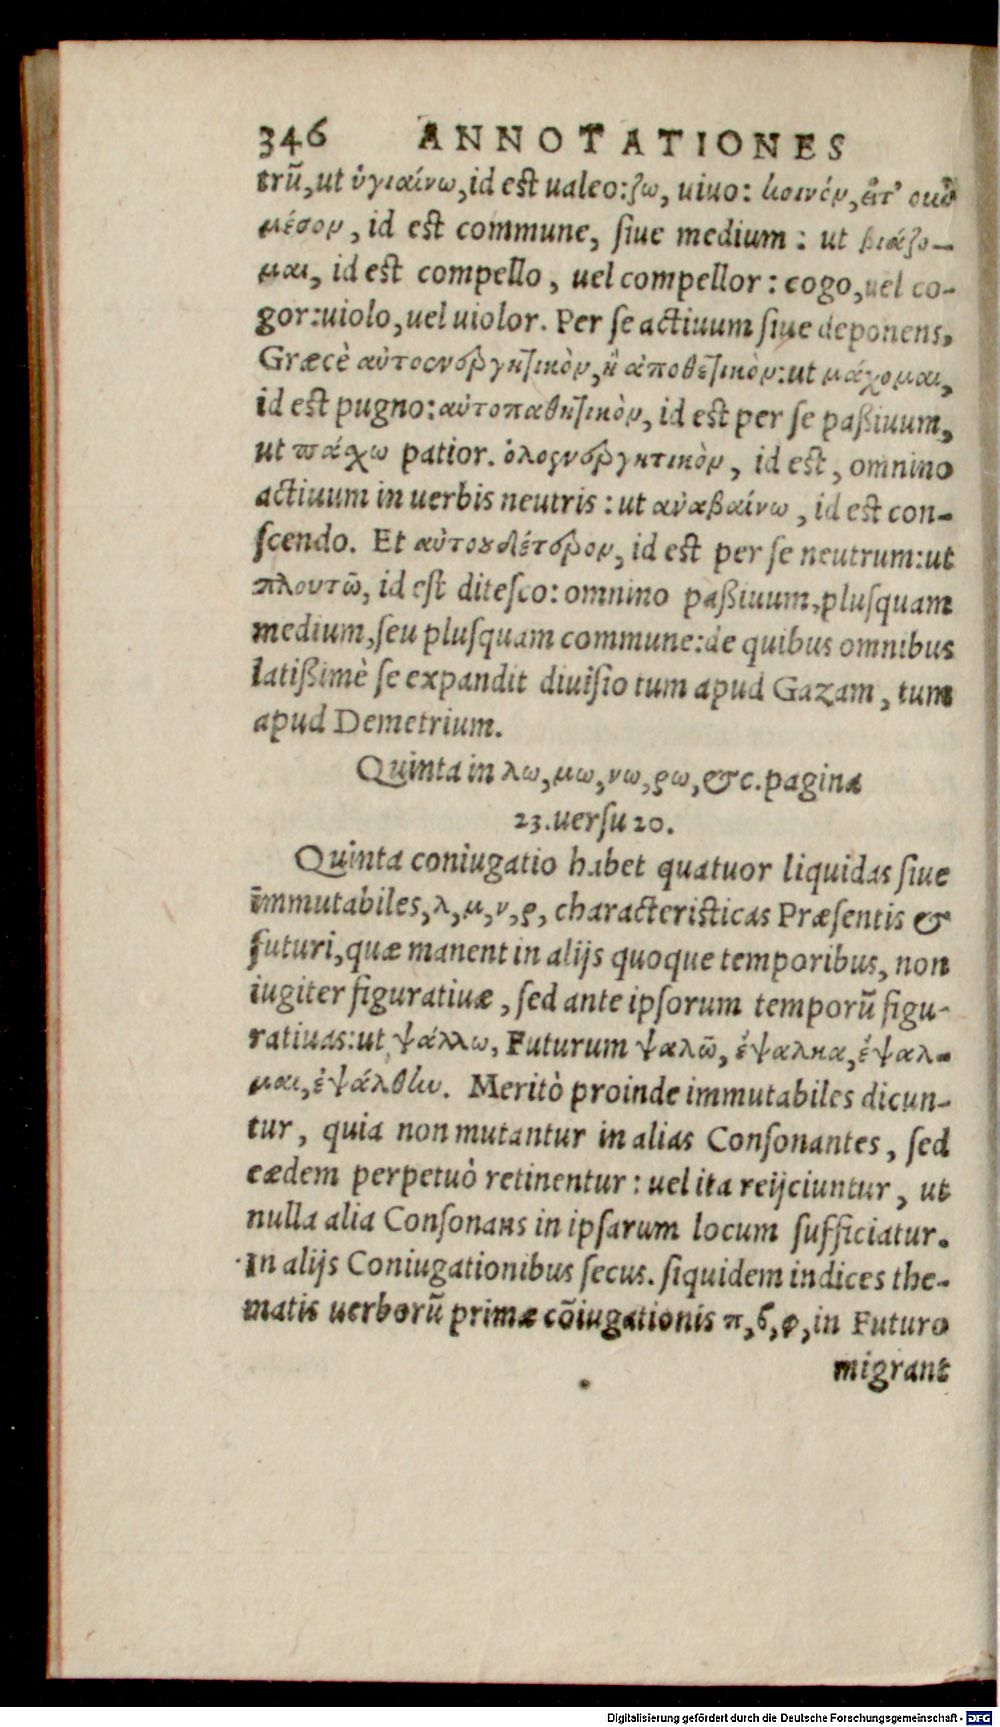 346 ANNOTATIONES
trũ, ut ὑγιαίνω, id est ualeo: ζω, uiuo: κοινόν,
μέσον, id est commune, siue medium: ut βιάζο-
μαι, id est compello, uel compellor: cogo, uel co-
gor: uiolo, uel uiolor. Per se actiuum siue deponens,
Græcè αὐτοενεργητικὸν, ἢ ἀποθετικὸν: ut μάχομαι,
id est pugno: αὐτοπαθητικὸν, id est per se paßiuum,
ut πάχω patior. ὁλοενεργητικὸν, id est, omnino
actiuum in uerbis neutris: ut ἀναβαίνω, id est con-
scendo. Et αὐτουδέτερον, id est per se neutrum: ut
πλουτῶ, id est ditesco: omnino paßiuum, plusquam
medium, seu plusquam commune: de quibus omnibus
latißimè se expandit diuisio tum apud Gazam, tum
apud Demetrium.
Quinta in λω, μω, νω, ρω, &c. pagina
23. uersu 20.
Quinta coniugatio habet quatuor liquidas siue
immutabiles, λ, μ, ν, ρ, characteristicas Præsentis &
futuri, quæ manent in alijs quoque temporibus, non
iugiter figuratiuæ, sed ante ipsorum temporũ figu-
ratiuas: ut ψάλλω, Futurum ψαλῶ, ἐψαλκα, ἐψαλ-
μαι, ἐψάλθην. Meritò proinde immutabiles dicun-
tur, quia non mutantur in alias Consonantes, sed
eædem perpetuò retinentur: uel ita reijciuntur, ut
nulla alia Consonans in ipsarum locum sufficiatur.
In alijs Coniugationibus secus. siquidem indices the-
matis uerborũ primæ cõiugationis π, β, φ, in Futuro
migrant
Digitalisierung gefördert durch die Deutsche Forschungsgemeinschaft - DFG